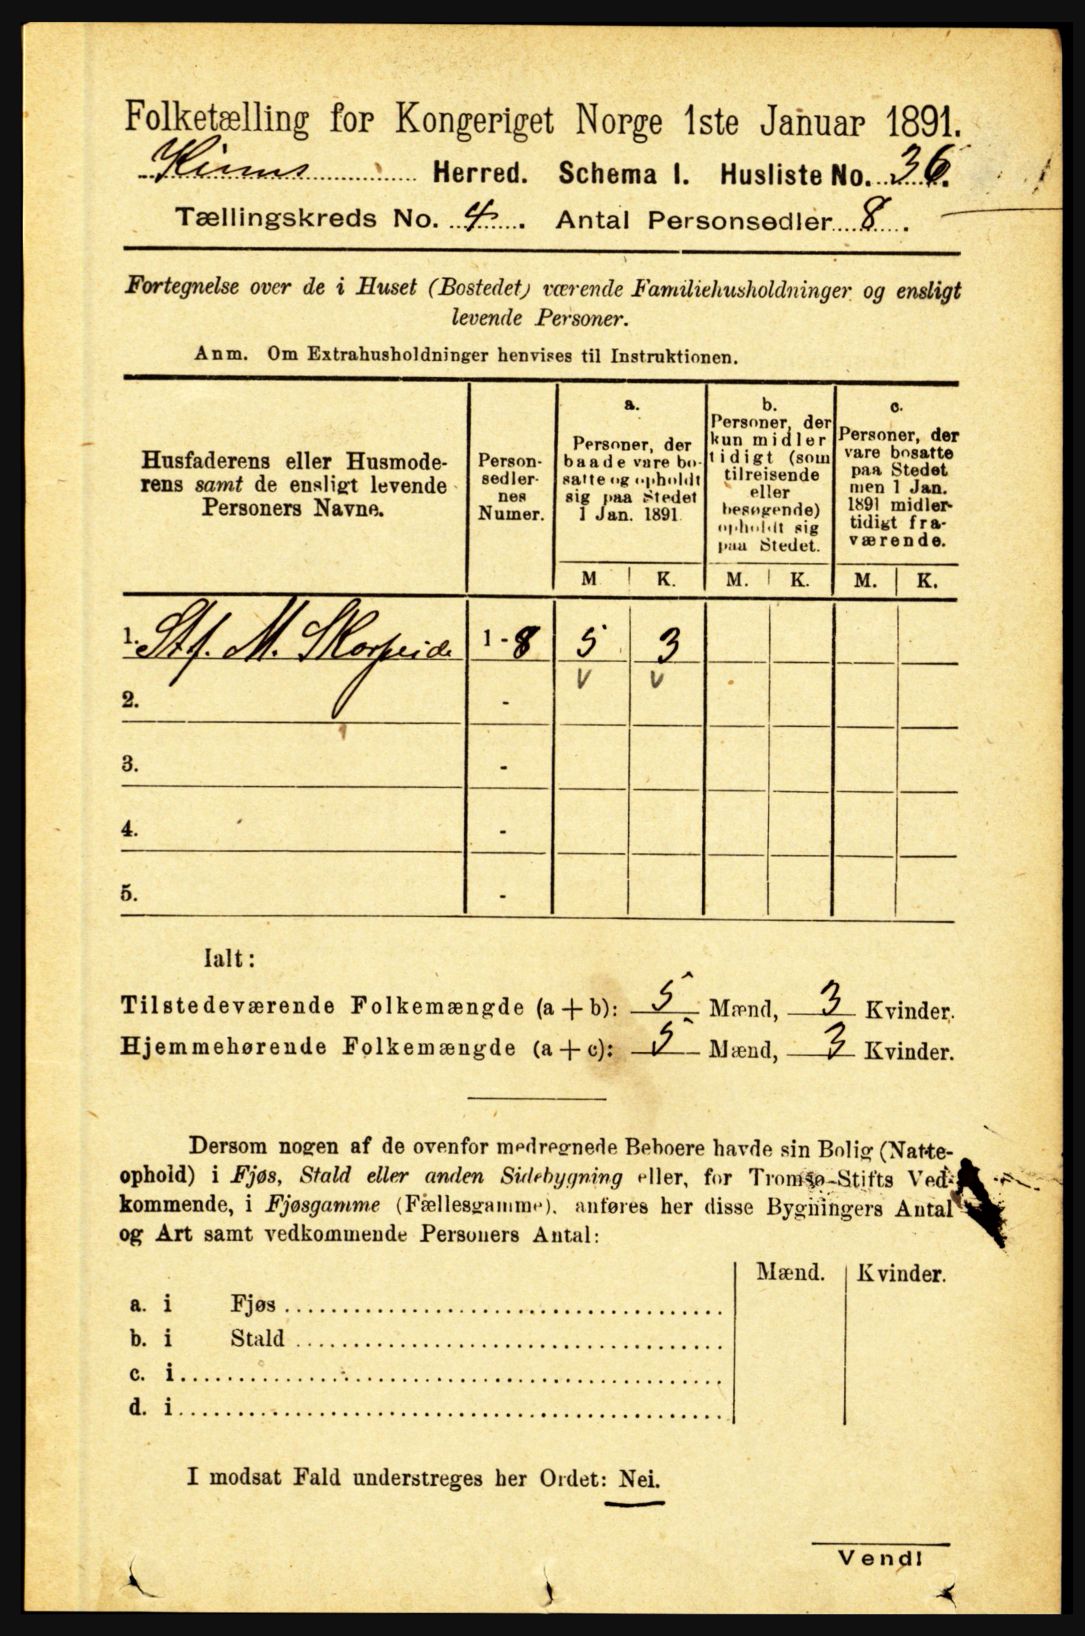 Folketælling for Kongeriget Norge 1ste Januar 1891.
Kinns Herred. Schema I. Husliste No. 36.
Tællingskreds No. 4. Antal Personsedler 8.
Fortegnelse over de i Huset (Bostedet) værende Familiehusholdninger og ensligt
levende Personer.
Anm. Om Extrahusholdninger henvises til Instruktionen.
Husfaderens eller Husmode-
rens samt de ensligt levende
Personers Navne.
Person-
sedler-
nes
Numer.
a.
Personer, der
baade vare bo-
satte og opholdt
sig paa Stedet
1 Jan. 1891.
b.
Personer, der
kun midler
tidigt (som
tilreisende
eller
besøgende)
opholdt sig
paa Stedet.
c.
Personer, der
vare bosatte
paa Stedet
men 1 Jan.
1891 midler-
tidigt fra-
værende.
M K. M. K. M. K.
1. Stf. M. Skorpeide 1 - 8 5 3
2. - v v
3. -
4. -
5. -
Ialt:
Tilstedeværende Folkemængde (a + b): 5 Mænd, 3 Kvinder.
Hjemmehørende Folkemængde (a + c): 5 Mænd, 3 Kvinder.
Dersom nogen af de ovenfor medregnede Beboere havde sin Bolig (Natte-
ophold) i Fjøs, Stald eller anden Sidebygning eller, for Tromsø Stifts Ved-
kommende, i Fjøsgamme (Fællesgamme), anføres her disse Bygningers Antal
og Art samt vedkommende Personers Antal:
Mænd. Kvinder.
a. i Fjøs
b. i Stald
c. i
d. i
I modsat Fald understreges her Ordet: Nei.
Vend!